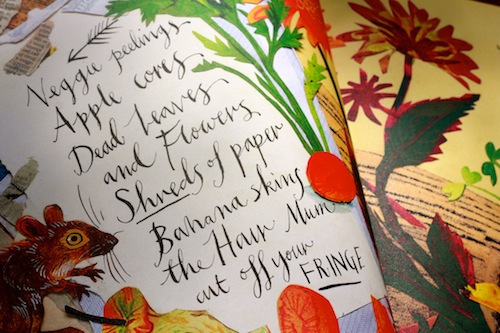 Veggie peelings
Apple cores
Dead Leaves
and Flowers
Shreds of paper
Banana skins
the Hair Mum
cut off your
FRINGE